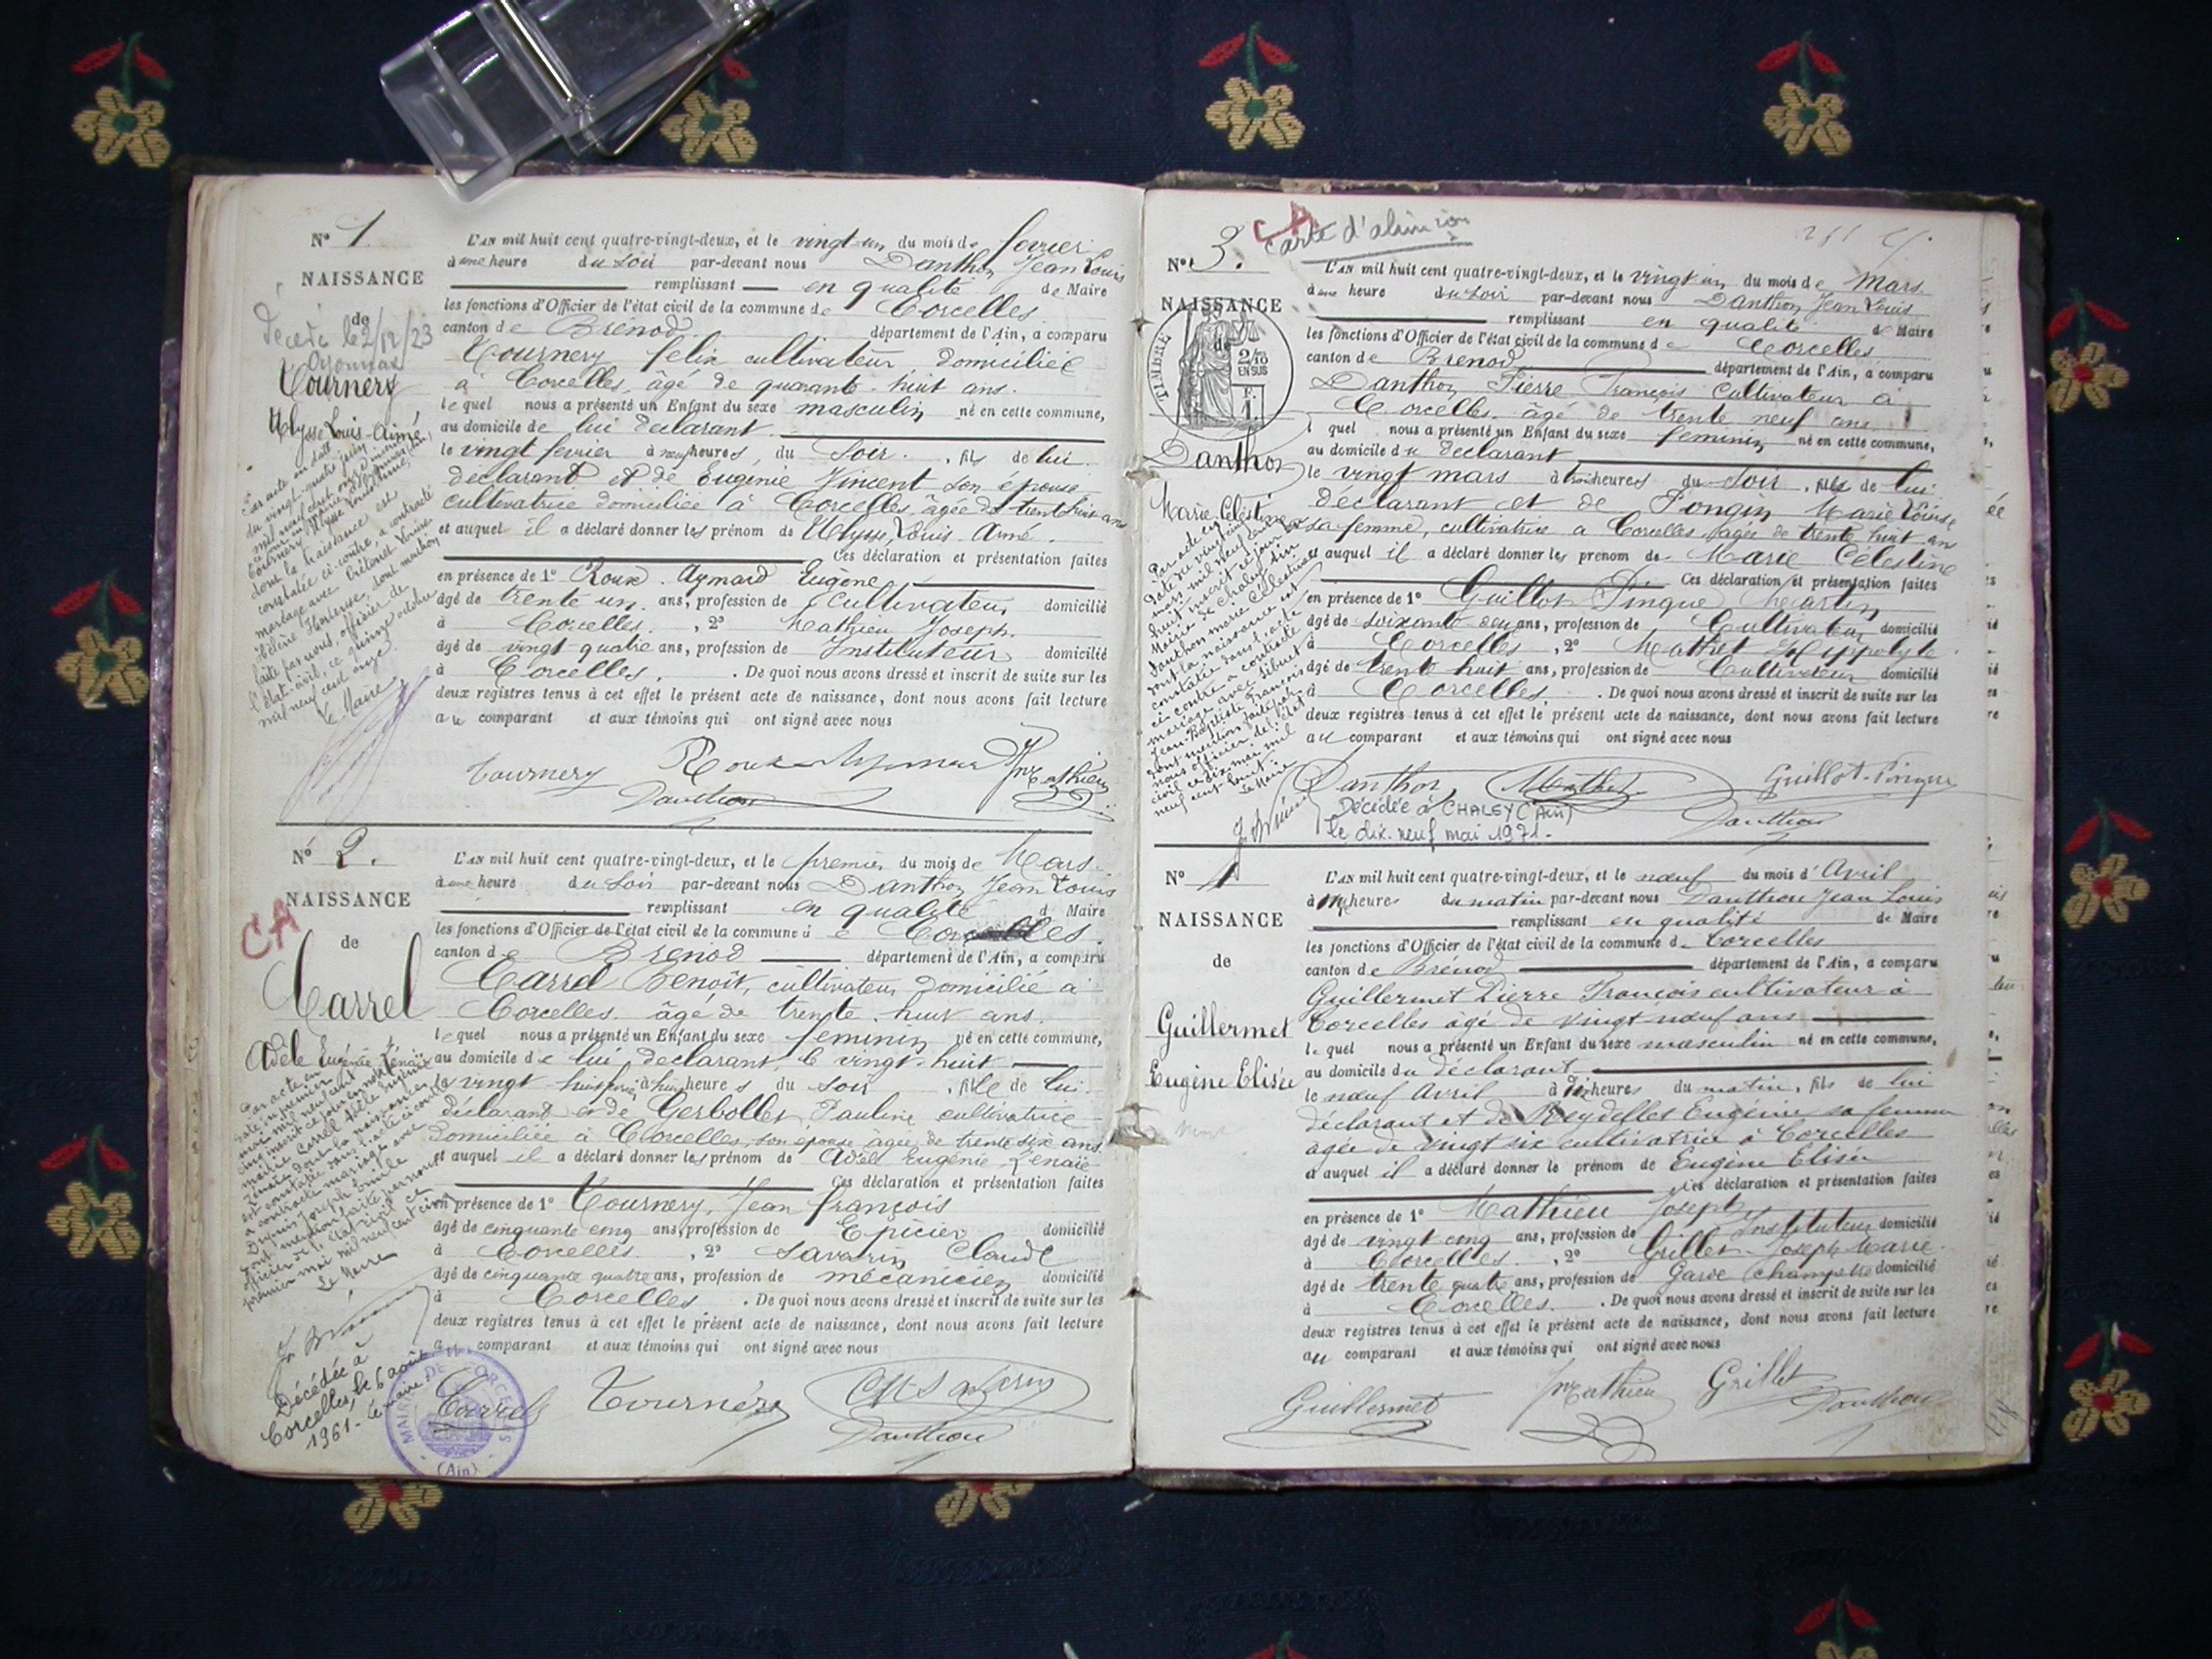 N° 1.
NAISSANCE
de
Décédé le 2/12/23
Oyonnax
Tournery
Ulysse Louis-Aimé
Par acte en date
du vingt-quatre juin
mil neuf cent onze inscrit
dont la naissance est
constatée ci-contre, a contracté
mariage avec Crétenet Louise
Hortense, dont mention
faite par nous, officier de
l'état-civil, ce quinze octobre
mil neuf cent onze
Le Maire
L'AN mil huit cent quatre-vingt-deux, et le vingt-un du mois de fevrier
à une heure du Soir par-devant nous Danthon Jean Louis
remplissant en qualité de Maire
les fonctions d'Officier de l'état civil de la commune de Corcelles
canton de Brenod département de l'Ain, a comparu
Tournery felix cultivateur domiciliée
à Corcelles âgé de quarante-huit ans.
lequel nous a présenté un Enfant du sexe masculin né en cette commune,
au domicile de lui déclarant
le vingt fevrier à neuf heures du Soir. , fils de lui
déclarant et de Eugénie Vincent son épouse
cultivatrice domiciliée à Corcelles, âgée de trente huit ans
et auquel il a déclaré donner les prénom de Ulysse, Louis-Aimé.
Ces déclaration et présentation faites
en présence de 1° Roux-Aymard Eugène
âgé de trente un ans, profession de Cultivateur domicilié
à Corcelles. , 2° Mathieu Joseph.
âgé de vingt quatre ans, profession de Instituteur domicilié
à Corcelles. . De quoi nous avons dressé et inscrit de suite sur les
deux registres tenus à cet effet le présent acte de naissance, dont nous avons fait lecture
au comparant et aux témoins qui ont signé avec nous
Tournery Roux-Aymard Jh Mathieu
Danthon
N° 2.
NAISSANCE
CA
de
Carrel
Adèle Eugénie Zénaïe
Par acte en
date du premier
mai mil neuf cent
cinq inscrit ce jour en notre
mairie Carrel Adèle Eugénie
Zénaïe dont la naissance
est constatée dans l'acte ci contre
a contracté mariage avec
Joseph Emile
dont mention faite par nous
officier de l'état civil ce
premier mai mil neuf cent cinq
Le Maire
Décédée à
Corcelles, le 6 août
1961 - Le Maire
MAIRIE DE CORCELLES
(Ain)
L'AN mil huit cent quatre-vingt-deux, et le premier du mois de Mars.
à une heure du Soir par-devant nous Danthon Jean Louis
remplissant en qualité d Maire
les fonctions d'Officier de l'état civil de la commune de Corcelles.
canton de Brenod département de l'Ain, a comparu
Carrel Benoît, cultivateur domicilié à
Corcelles âgé de trente-huit ans.
lequel nous a présenté un Enfant du sexe feminin né en cette commune,
au domicile de lui déclarant, le vingt-huit
le vingt huit fevrier à huit heures du Soir , fille de lui
déclarant et de Gerbollet Pauline cultivatrice
domiciliée à Corcelles, son épouse âgée de trente six ans.
et auquel il a déclaré donner les prénom de Adèle Eugénie Zénaïe
Ces déclaration et présentation faites
en présence de 1° Tournery, Jean françois
âgé de cinquante cinq ans, profession de Epicier domicilié
à Corcelles , 2° Savarin Claude
âgé de cinquante quatre ans, profession de mécanicien domicilié
à Corcelles . De quoi nous avons dressé et inscrit de suite sur les
deux registres tenus à cet effet le présent acte de naissance, dont nous avons fait lecture
au comparant et aux témoins qui ont signé avec nous
Carrel Tournery Savarin
Danthon
CA
Carte d'alimion
N° 3.
NAISSANCE
de
TIMBRE
2/10
EN SUS
F.
1.
Danthon
Marie Célestine
Par acte en
date du vingt cinq
mars mil neuf cent
huit inscrit ce jour
Mairie de Chaley Ain
Danthon Marie Célestine
dont la naissance est
constatée dans l'acte
ci contre a contracté
mariage avec Sibuet
Jean-Baptiste François
dont mention faite par
nous officier de l'état
civil ce dix mai mil
neuf cent huit.
Le Maire
L'AN mil huit cent quatre-vingt-deux, et le vingt un du mois de Mars
à une heure du Soir par-devant nous Danthon Jean Louis
remplissant en qualité de Maire
les fonctions d'Officier de l'état civil de la commune de Corcelles.
canton de Brenod département de l'Ain, a comparu
Danthon Pierre François cultivateur à
Corcelles, âgé de trente neuf ans
lequel nous a présenté un Enfant du sexe feminin né en cette commune,
au domicile du déclarant
le vingt mars à trois heures du Soir , fille de lui
déclarant et de Pongin Marie Louise
sa femme, cultivatrice a Corcelles âgée de trente huit ans
et auquel il a déclaré donner les prenom de Marie Célestine
Ces déclaration et présentation faites
en présence de 1° Guillot-Pingue Martin
âgé de soixante deux ans, profession de Cultivateur domicilié
à Corcelles , 2° Mathet Hyppolyte
âgé de trente huit ans, profession de Cultivateur domicilié
à Corcelles . De quoi nous avons dressé et inscrit de suite sur les
deux registres tenus à cet effet le présent acte de naissance, dont nous avons fait lecture
au comparant et aux témoins qui ont signé avec nous
Danthon Mathet Guillot-Pingue
Danthon
Décédée à CHALEY (Ain)
le dix-neuf mai 1971.-
N° 4
NAISSANCE
de
Guillermet
Eugène Elisée
L'AN mil huit cent quatre-vingt-deux, et le neuf du mois d'Avril
à onze heures du matin par-devant nous Danthon Jean Louis
remplissant en qualité de Maire
les fonctions d'Officier de l'état civil de la commune de Corcelles
canton de Brénod département de l'Ain, a comparu
Guillermet Pierre François cultivateur à
Corcelles âgé de vingt neuf ans
lequel nous a présenté un Enfant du sexe masculin né en cette commune,
au domicile du déclarant
le neuf Avril à dix heures du matin, fils de lui
déclarant et de Reydellet Eugénie sa femme
âgée de vingt six cultivatrice à Corcelles
et auquel il a déclaré donner le prénom de Eugène Elisée
Ces déclaration et présentation faites
en présence de 1° Mathieu Joseph
âgé de vingt cinq ans, profession de Instituteur domicilié
à Corcelles. , 2° Grillet Joseph Marie.
âgé de trente quatre ans, profession de Garde champetre domicilié
à Corcelles. . De quoi nous avons dressé et inscrit de suite sur les
deux registres tenus à cet effet le présent acte de naissance, dont nous avons fait lecture
au comparant et aux témoins qui ont signé avec nous
Guillermet Jh Mathieu Grillet
Danthon